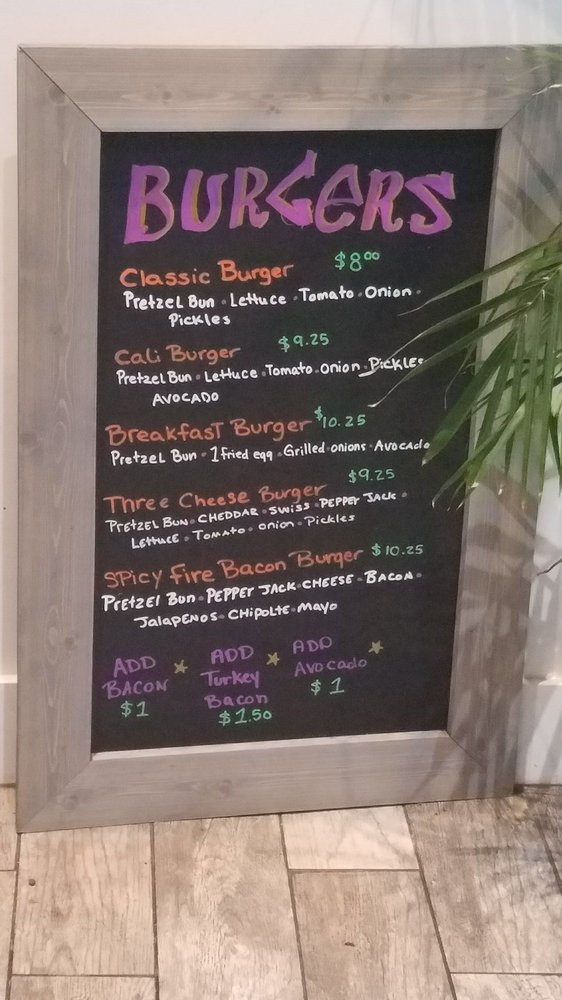 BURGERS
Classic Burger $8.00
Pretzel Bun • Lettuce • Tomato • Onion •
Pickles
Cali Burger $9.25
Pretzel Bun • Lettuce • Tomato • onion • Pickles
AVOCADO
Breakfast Burger $10.25
Pretzel Bun • 1 fried egg • Grilled onions • Avocado
Three Cheese Burger $9.25
Pretzel Bun • CHEDDAR • SWISS • PEPPER JACK •
Lettuce • Tomato • onion • Pickles
SPicy Fire Bacon Burger $10.25
Pretzel Bun • PEPPER JACK CHEESE • BACON •
Jalapenos • CHIPOLTE • MAYO
ADD
BACON
$1
ADD
Turkey
Bacon
$1.50
ADD
Avocado
$1